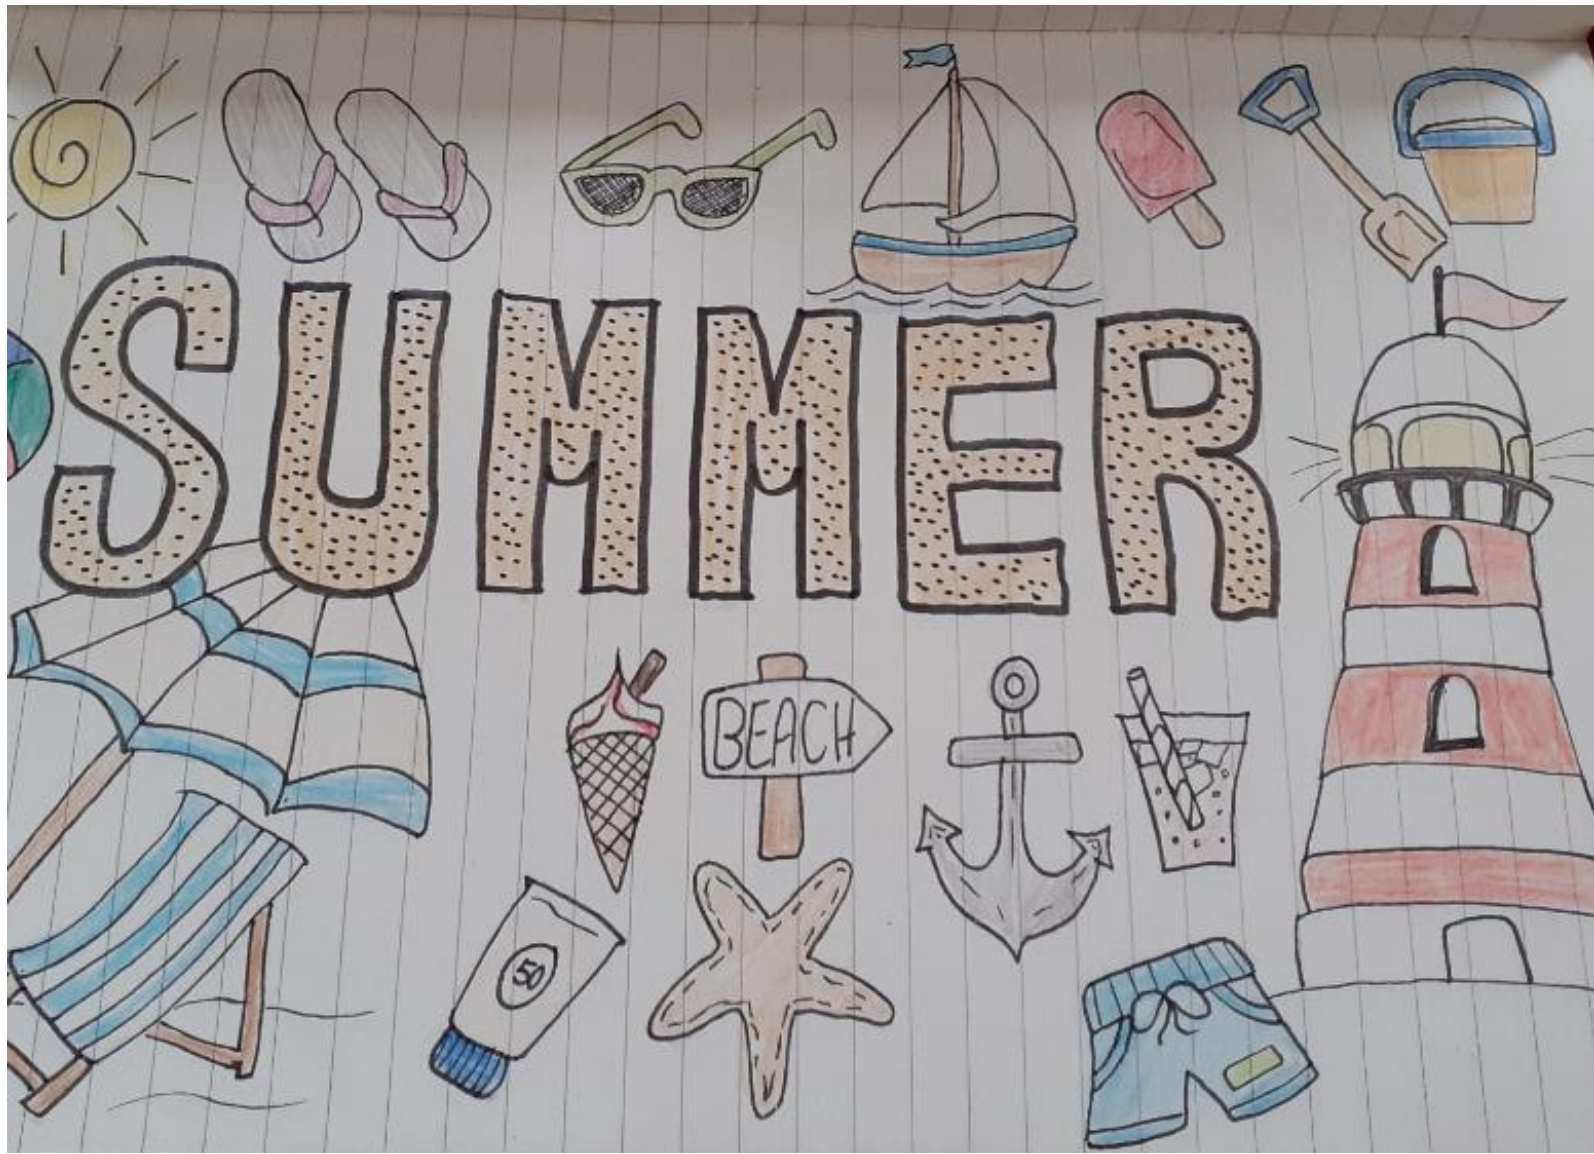 SUMMER
BEACH
50